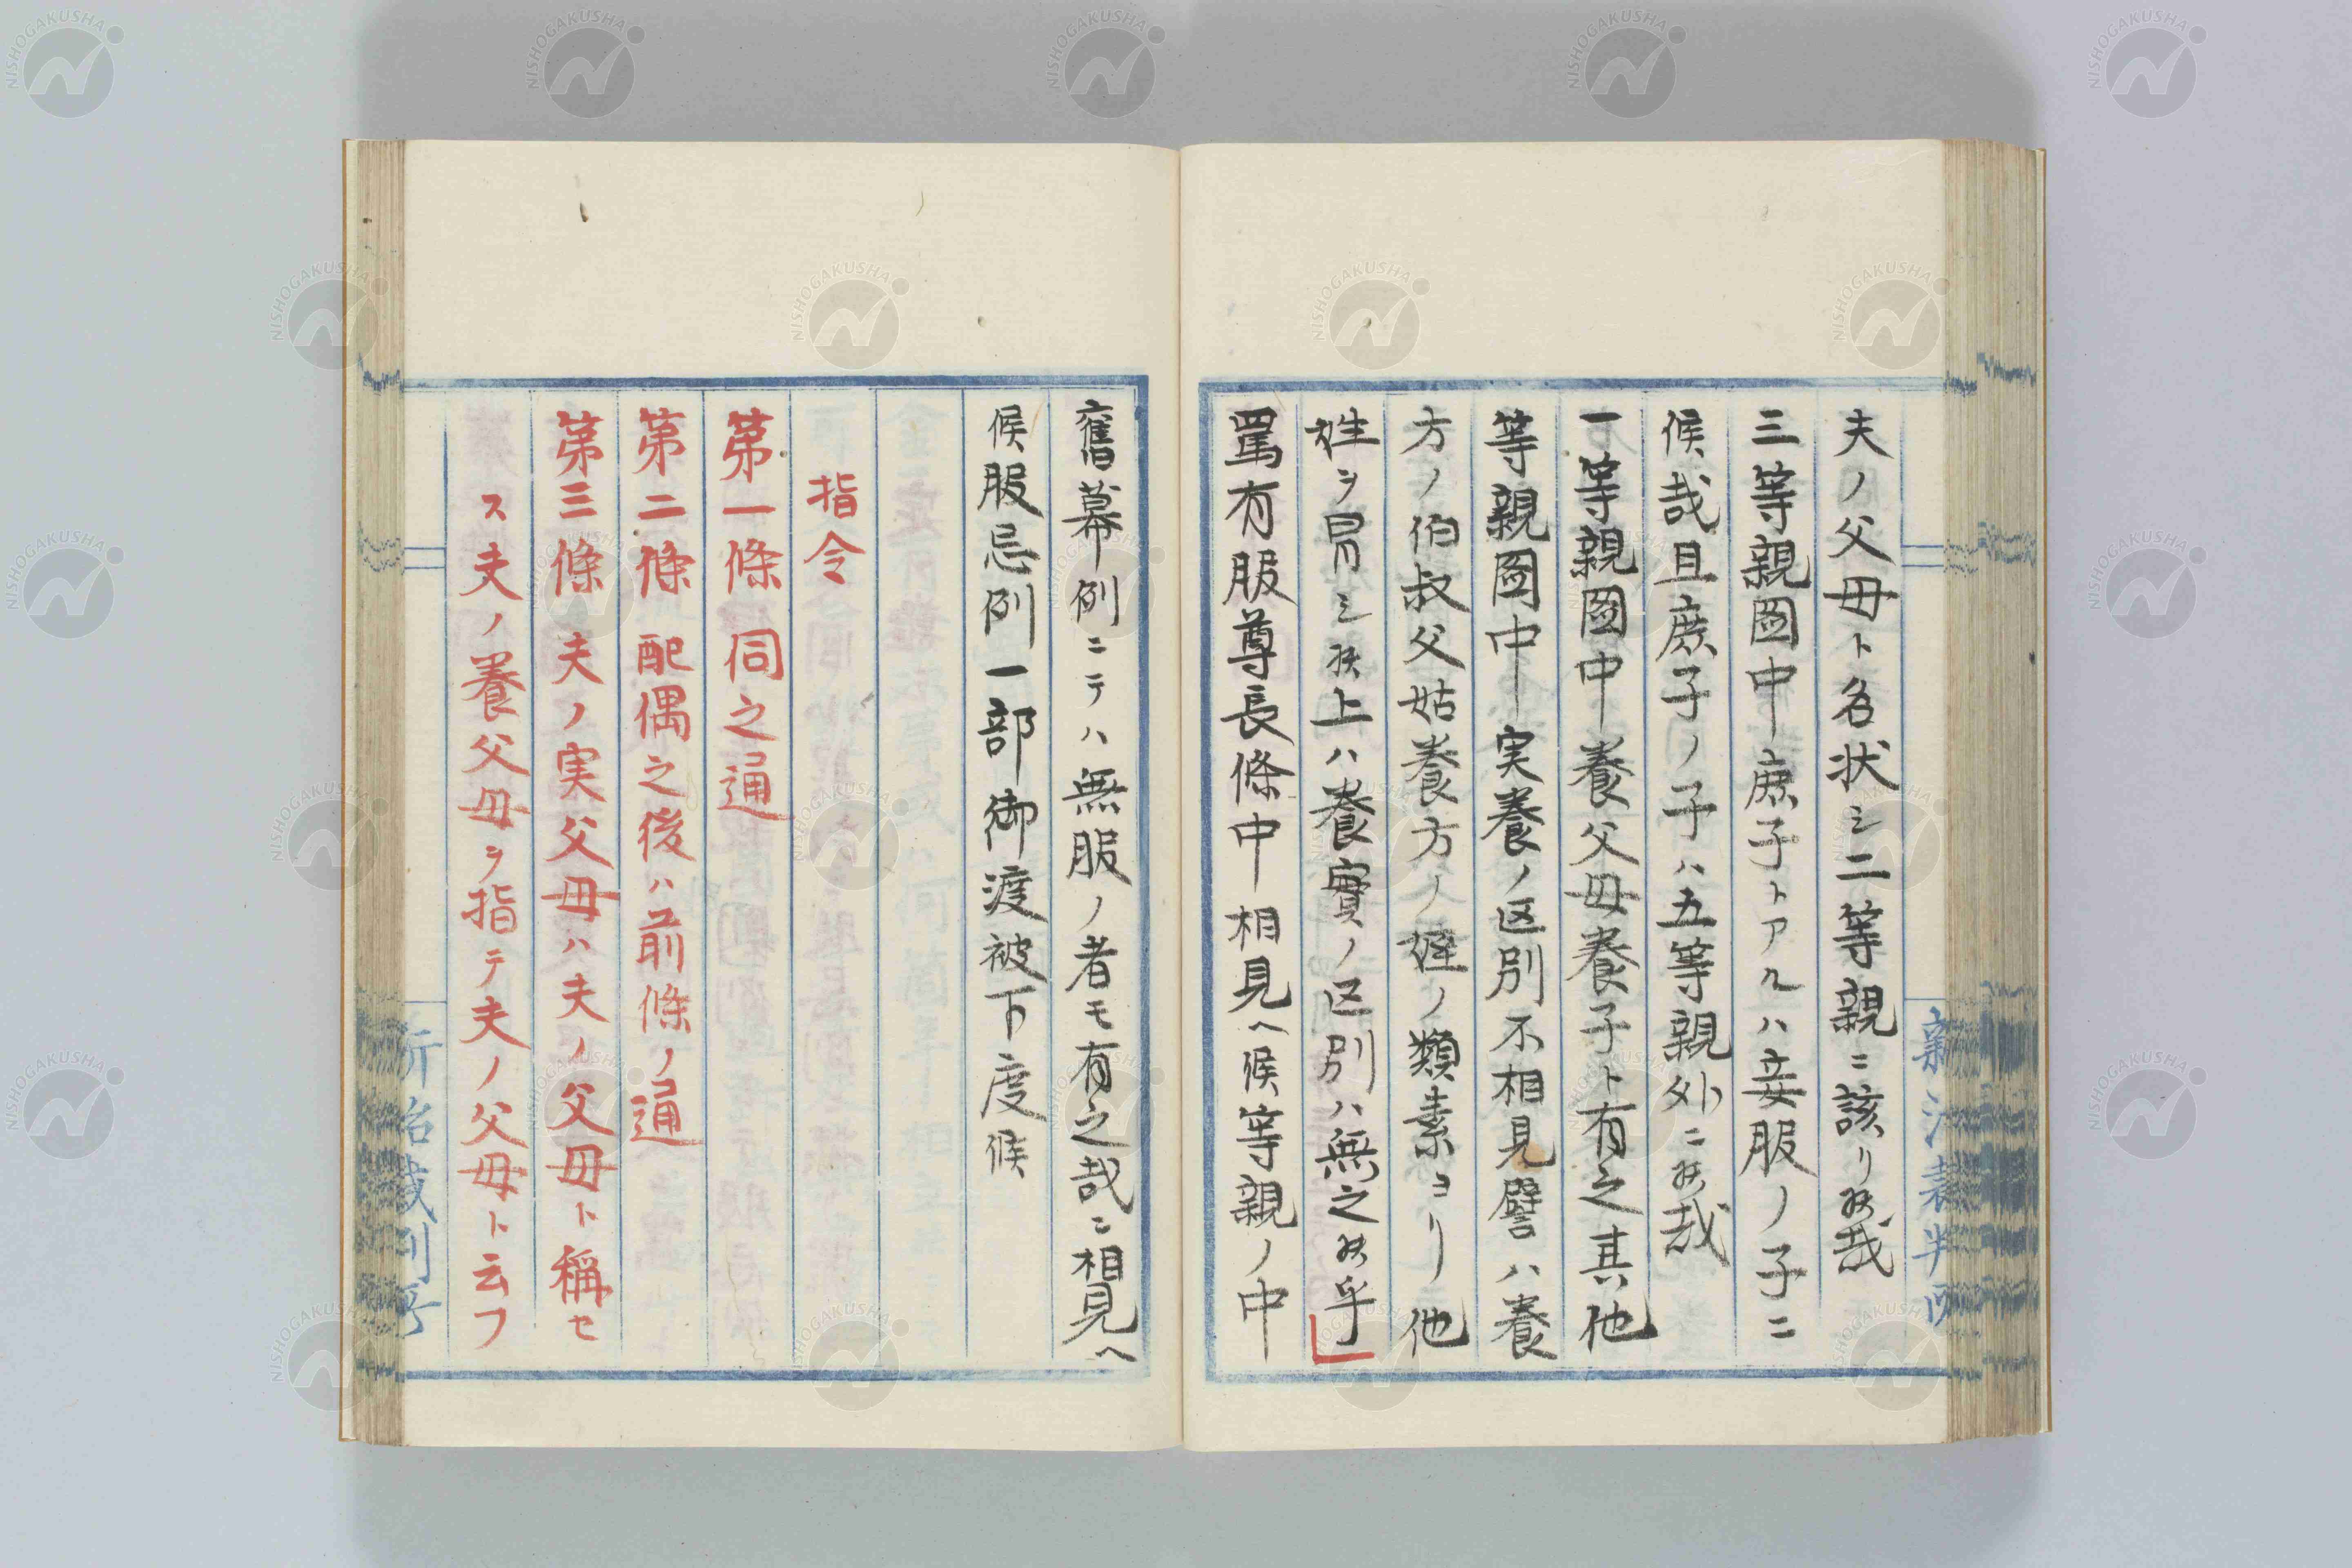 夫ノ父母ト名状シ二等親ニ該リ候哉
三等親圖中庶子トアルハ妾服ノ子ニ
候哉且庶子ノ子ハ五等親外ニ候哉
一等親圖中養父母養子ト有之其他
等親圖中実養ノ区別不相見譬ハ養
方ノ伯叔父姑養方ノ姪ノ類素ヨリ他
姓ヲ冒シ候上ハ養實ノ区別ハ無之候乎
罵有服尊長條中相見ヘ候等親ノ中
舊幕例ニテハ無服ノ者モ有之哉ニ相見ヘ
候服忌例一部御渡被下度候
指令
第一條 同之通
第二條 配偶之後ハ前條ノ通
第三條 夫ノ実父母ハ夫ノ父母ト稱セ
ス夫ノ養父母ヲ指テ夫ノ父母ト云フ
NISHOGAKUSHA